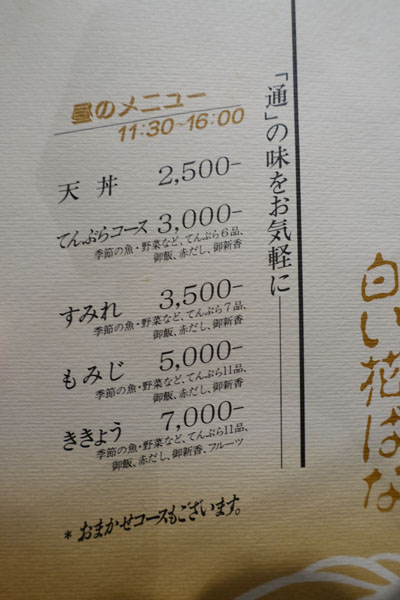 昼のメニュー
11:30~16:00
「通」の味をお気軽に
天丼 2,500-
てんぷらコース 3,000-
季節の魚・野菜など、てんぷら6品、
御飯、赤だし、御新香
すみれ 3,500-
季節の魚・野菜など、てんぷら7品、
御飯、赤だし、御新香
もみじ 5,000-
季節の魚・野菜など、てんぷら11品、
御飯、赤だし、御新香
ききょう 7,000-
季節の魚・野菜など、てんぷら11品、
御飯、赤だし、御新香、フルーツ
* おまかせコースもございます。
白い花はな